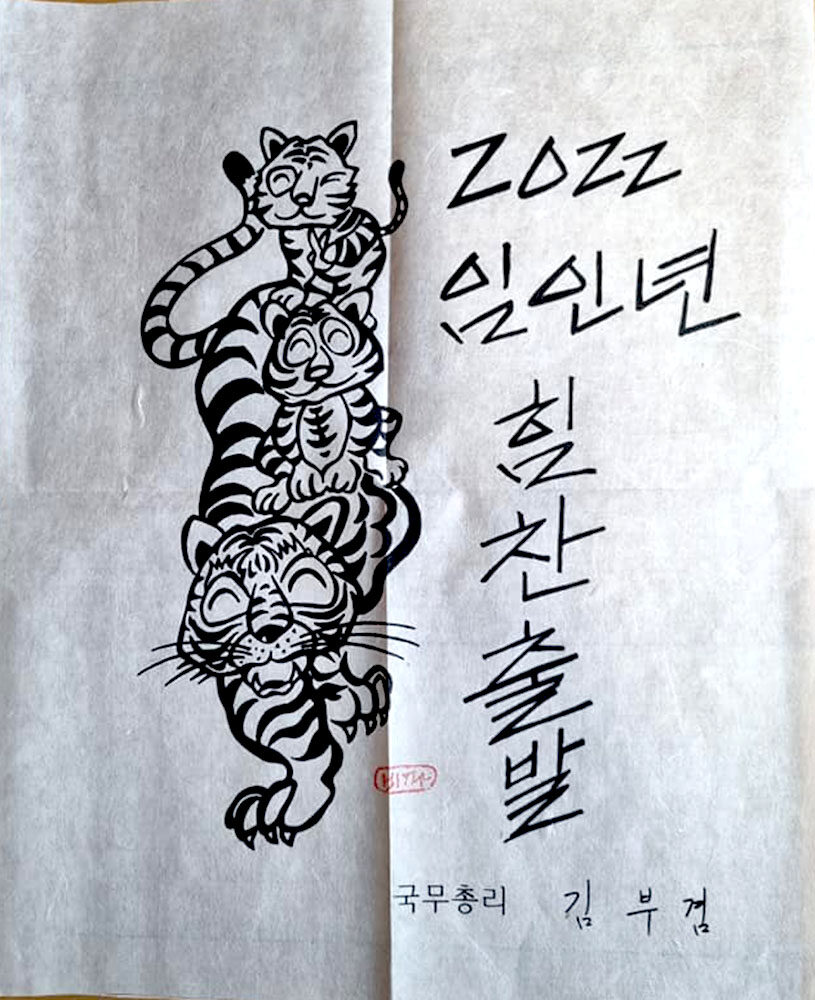 2022
임인년
힘
찬
출
발
국무총리 김부겸